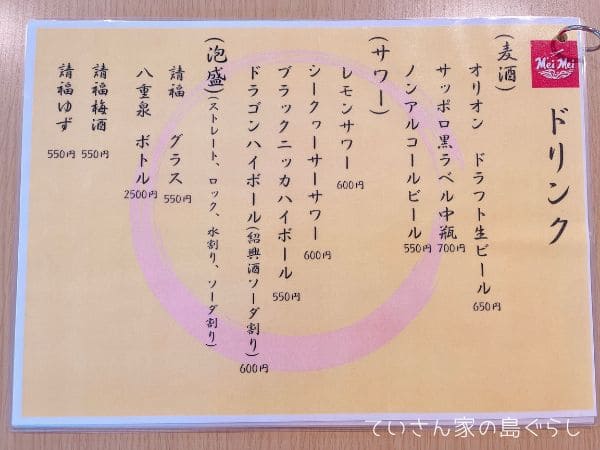 Mei Mei
ドリンク
(麦酒)
オリオン ドラフト生ビール 650円
サッポロ黒ラベル中瓶 700円
ノンアルコールビール 550円
(サワー)
レモンサワー 600円
シークヮーサーサワー 600円
ブラックニッカハイボール 550円
ドラゴンハイボール(紹興酒ソーダ割り) 600円
(泡盛)(ストレート、ロック、水割り、ソーダ割り)
請福 グラス 550円
八重泉 ボトル 2500円
請福梅酒 550円
請福ゆず 550円
ていさん家の島ぐらし